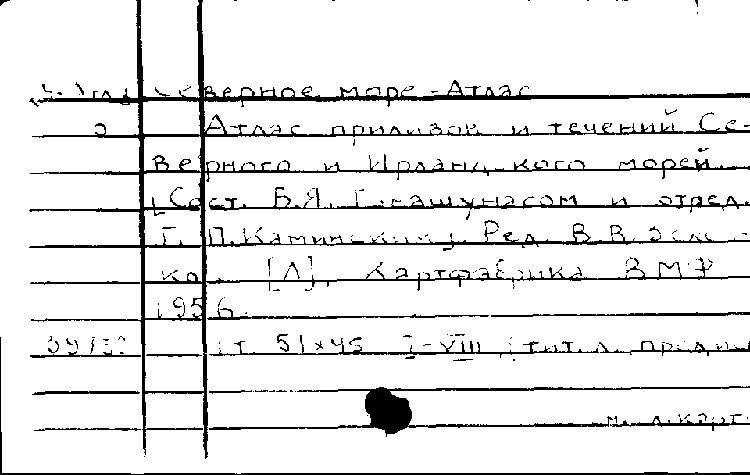 Северное море - Атлас
Атлас приливов и течений Се-
верного и Ирландского морей.
[Сост. Б.Я. и отред.
Г. П. Каминским]. Ред. В.В.
ка. [Л], Картфабрика ВМФ
1956.
1 т. 51×45 I-VIII (тит. л.
л. карт